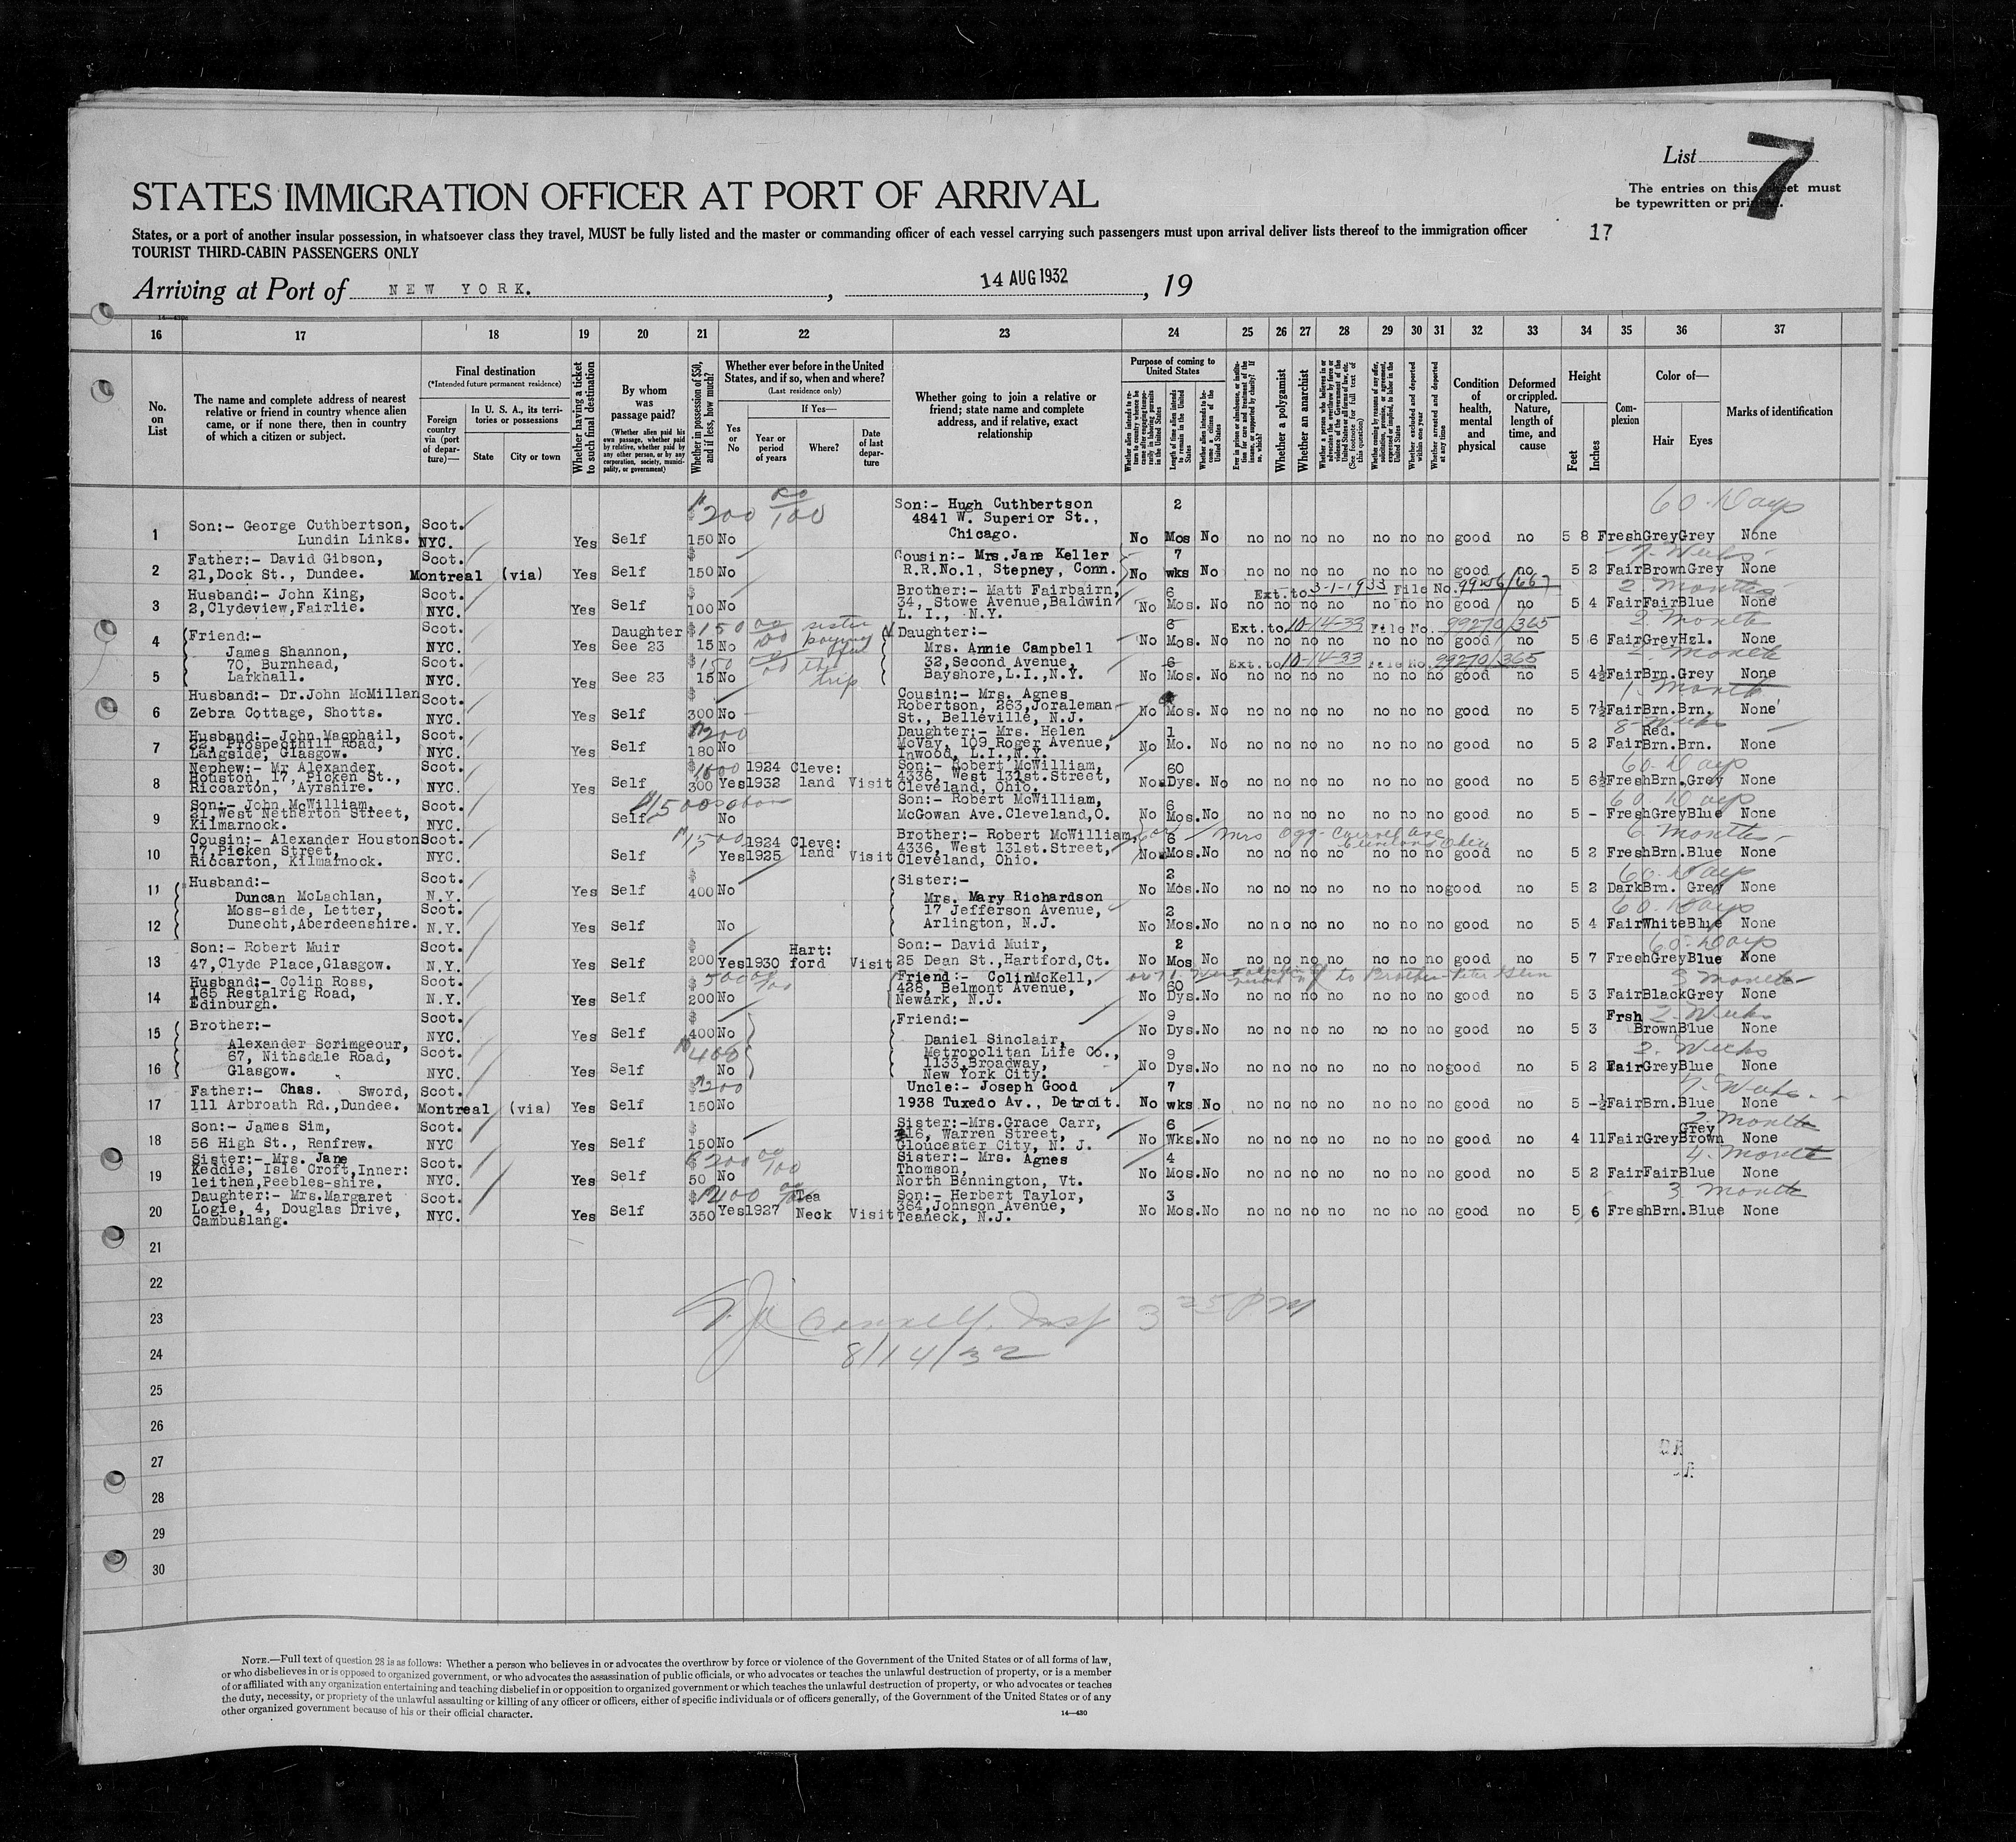 List 7
STATES IMMIGRATION OFFICER AT PORT OF ARRIVAL
The entries on this sheet must
be typewritten or printed.
States, or a port of another insular possession, in whatsoever class they travel, MUST be fully listed and the master or commanding officer of each vessel carrying such passengers must upon arrival deliver lists thereof to the immigration officer
17
TOURIST THIRD-CABIN PASSENGERS ONLY
Arriving at Port of NEW YORK. , 14 AUG 1932 , 19
16 17 18 19 20 21 22 23 24 25 26 27 28 29 30 31 32 33 34 35 36 37
No. on List
The name and complete address of nearest relative or friend in country whence alien came, or if none there, then in country of which a citizen or subject.
Final destination
(*Intended future permanent residence)
Foreign country via (port of departure)—
In U. S. A., its territories or possessions
State
City or town
Whether having a ticket to such final destination
By whom was passage paid?
(Whether alien paid his own passage, whether paid by relative, whether paid by any other person, or by any corporation, society, municipality, or government)
Whether in possession of $50, and if less, how much?
Whether ever before in the United States, and if so, when and where?
(Last residence only)
Yes or No
If Yes—
Year or period of years
Where?
Date of last departure
Whether going to join a relative or friend; state name and complete address, and if relative, exact relationship
Purpose of coming to United States
Length of time alien intends to remain in the United States
Whether a polygamist
Whether an anarchist
Whether excluded and deported within one year
Whether arrested and deported at any time
Condition of health, mental and physical
Deformed or crippled. Nature, length of time, and cause
Height
Feet
Inches
Complexion
Color of—
Hair
Eyes
Marks of identification
1 Son:- George Cuthbertson, Lundin Links. Scot. NYC. Yes Self $200 150 No Son:- Hugh Cuthbertson 4841 W. Superior St., Chicago. No 2 Mos No no no no no no no no good no 5 8 Fresh Grey Grey None 60 Days
2 Father:- David Gibson, 21,Dock St., Dundee. Scot. Montreal (via) Yes Self $ 150 No Cousin:- Mrs.Jane Keller R.R.No.1, Stepney, Conn. No 7 wks No no no no no no no no good no 5 2 Fair Brown Grey None 7 Weeks
3 Husband:- John King, 2,Clydeview,Fairlie. Scot. NYC. Yes Self $ 100 No Brother:- Matt Fairbairn, 34, Stowe Avenue,Baldwin L. I., N.Y. No 6 Mos. No Ext. to 3-1-1933 File No. no no no no no no no good no 5 4 Fair Fair Blue None 2 Months
4 Friend:- James Shannon, 70, Burnhead, Larkhall. Scot. NYC. Yes Daughter See 23 $150 15 No sister paying the trip Daughter:- Mrs. Annie Campbell 32,Second Avenue, Bayshore,L.I.,N.Y. No 6 Mos. No Ext. to 10-14-33 File No. 99270/365 no no no no no no no good no 5 6 Fair Grey Hzl. None 2 Months
5 Scot. NYC. Yes See 23 $150 15 No No 6 Mos. No Ext. to 10-14-33 File No. 99270/365 no no no no no no no good no 5 4½ Fair Brn. Grey None 2 Month
6 Husband:- Dr.John McMillan Zebra Cottage, Shotts. Scot. NYC. Yes Self $ 300 No Cousin:- Mrs. Agnes Robertson, 263,Joraleman St., Belleville, N.J. No Mos. No no no no no no no no good no 5 7½ Fair Brn. Brn. None 1 Month
7 Husband:- John Macphail, 22, Prospecthill Road, Langside, Glasgow. Scot. NYC. Yes Self $200 180 No Daughter:- Mrs. Helen McVay, 109 Roger Avenue, Inwood, L.I.,N.Y. No 1 Mo. No no no no no no no no good no 5 2 Fair Red. Brn. Brn. None 8 Weeks
8 Nephew:- Mr Alexander Houston, 17, Picken St., Riccarton, Ayrshire. Scot. NYC. Yes Self $ 300 Yes 1924 1932 Cleve: land Visit Son:- Robert McWilliam, 4336, West 131st.Street, Cleveland, Ohio. No 60 Dys. No no no no no no no no good no 5 6½ Fresh Brn. Grey None 60 Days
9 Son:- John McWilliam, 21,West Netherton Street, Kilmarnock. Scot. NYC. Self No Son:- Robert McWilliam, McGowan Ave.Cleveland,O. No 6 Mos. No no no no no no no no good no 5 - Fresh Grey Blue None 60 Days
10 Cousin:- Alexander Houston 17,Picken Street, Riccarton, Kilmarnock. Scot. NYC. Self $1500 Yes 1924 1925 Cleve: land Visit Brother:- Robert McWilliam, 4336, West 131st.Street, Cleveland, Ohio. No 6 Mos. No Mrs Ogg Carroll Ave Cleveland Ohio no no no no no no no good no 5 2 Fresh Brn. Blue None 6 Months
11 Husband:- Duncan McLachlan, Moss-side, Letter, Dunecht,Aberdeenshire. Scot. N.Y. Yes Self $ 400 No Sister:- Mrs. Mary Richardson 17 Jefferson Avenue, Arlington, N.J. No 2 Mos. No no no no no no no no good no 5 2 Dark Brn. Grey None 60 Days
12 Scot. N.Y. Yes Self No No 2 Mos. No no no no no no no no good no 5 4 Fair White Blue None 60 Days
13 Son:- Robert Muir 47,Clyde Place,Glasgow. Scot. N.Y. Yes Self $ 200 Yes 1930 Hart: ford Visit Son:- David Muir, 25 Dean St.,Hartford,Ct. No 2 Mos No no no no no no no no good no 5 7 Fresh Grey Blue None 60 Days
14 Husband:- Colin Ross, 165 Restalrig Road, Edinburgh. Scot. N.Y. Yes Self $500 200 No Friend:- Colin McKell, 428, Belmont Avenue, Newark, N.J. No 60 Dys. No to Brother Peter no no no no no no no good no 5 3 Fair Black Grey None 3 Months
15 Brother:- Alexander Scrimgeour, 67, Nithsdale Road, Glasgow. Scot. NYC. Yes Self $ 400 No Friend:- Daniel Sinclair, Metropolitan Life Co., 1133,Broadway, New York City. No 9 Dys. No no no no no no no no good no 5 3 Frsh Brown Blue None 2 Weeks
16 Scot. NYC. Yes Self $400 No No 9 Dys. No no no no no no no no good no 5 2 Fair Grey Blue None 2 Weeks
17 Father:- Chas. Sword, 111 Arbroath Rd.,Dundee. Scot. Montreal (via) Yes Self $200 150 No Uncle:- Joseph Good 1938 Tuxedo Av., Detroit. No 7 wks No no no no no no no no good no 5 -½ Fair Brn. Blue None 7 Weeks
18 Son:- James Sim, 56 High St., Renfrew. Scot. NYC Yes Self $ 150 No Sister:-Mrs.Grace Carr, 416, Warren Street, Gloucester City, N. J. No 6 Wks. No no no no no no no no good no 4 11 Fair Grey Grey Brown None 2 Months
19 Sister:- Mrs. Jane Keddie, Isle Croft,Inner: leithen,Peebles-shire. Scot. NYC. Yes Self $200 50 No Sister:- Mrs. Agnes Thomson, North Bennington, Vt. No 4 Mos. No no no no no no no no good no 5 2 Fair Fair Blue None 4 Month
20 Daughter:- Mrs.Margaret Logie, 4, Douglas Drive, Cambuslang. Scot. NYC. Yes Self $400 350 Yes 1927 Tea Neck Visit Son:- Herbert Taylor, 364,Johnson Avenue, Teaneck, N.J. No 3 Mos. No no no no no no no no good no 5 6 Fresh Brn. Blue None 3 Month
21
22
23
24
25
26
27
28
29
30
Insp 3 25 PM
8/14/32
NOTE.—Full text of question 28 is as follows: Whether a person who believes in or advocates the overthrow by force or violence of the Government of the United States or of all forms of law,
or who disbelieves in or is opposed to organized government, or who advocates the assassination of public officials, or who advocates or teaches the unlawful destruction of property, or is a member
of or affiliated with any organization entertaining and teaching disbelief in or opposition to organized government or which teaches the unlawful destruction of property, or who advocates or teaches
the duty, necessity, or propriety of the unlawful assaulting or killing of any officer or officers, either of specific individuals or of officers generally, of the Government of the United States or of any
other organized government because of his or their official character.
14—430